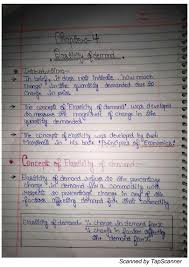 Chapter-4
Elasticity of demand
Introduction -
In brief, it does not indicate how much
change in the quantity demanded due to
change in price.
The concept of Elasticity of demand was developed
to measure the magnitude of change in the
quantity demanded.
The concept of elasticity was developed by
Marshall in his book "Principles of Economics".
Concept of Elasticity of demand
Elasticity of demand refers to the percentage
change in demand for a commodity with
respect to percentage change in any of the
factors affecting demand for that commodity
Elasticity of demand = % change in demand
% change in factor affecting
the demand
Scanned by TapScanner